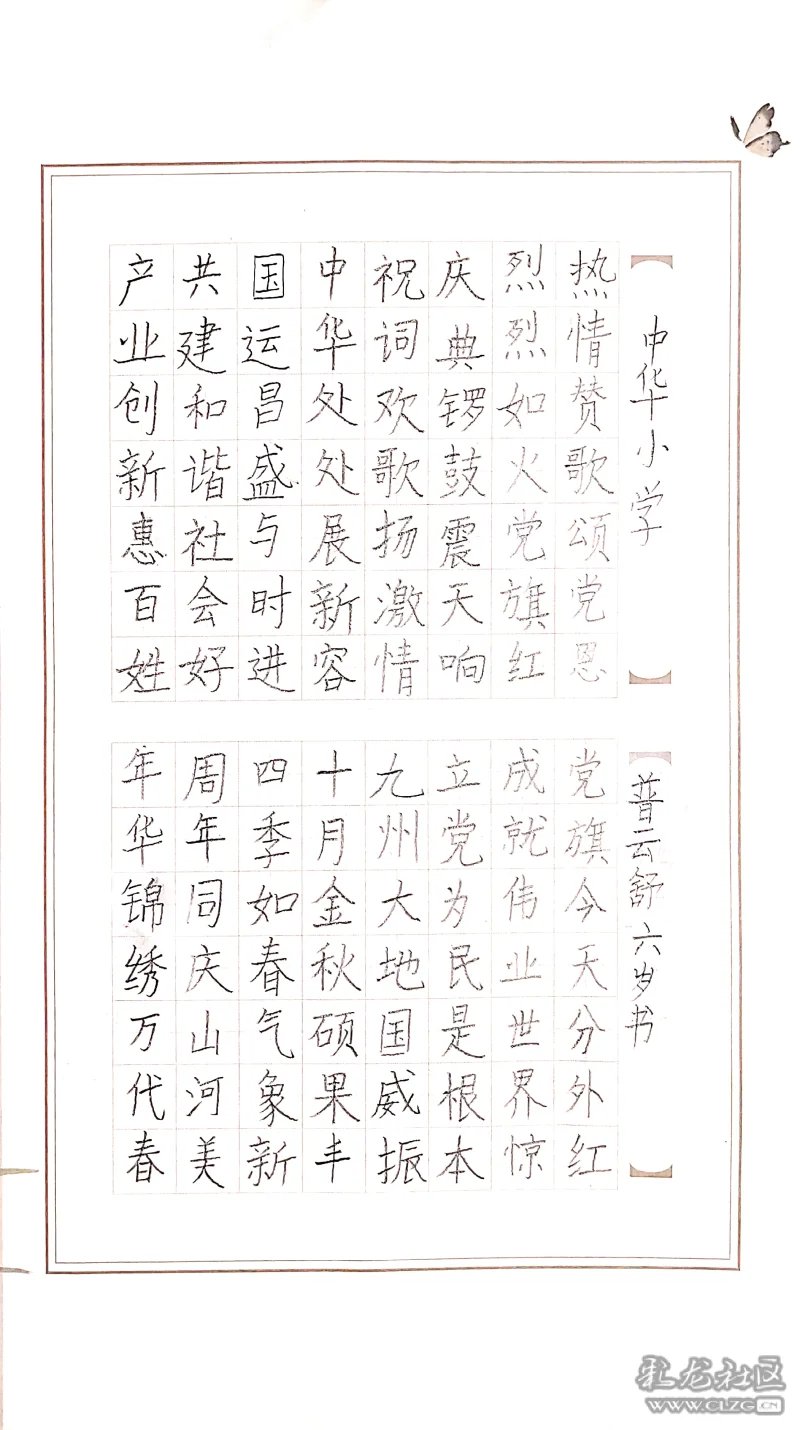 中华小学
热情赞歌颂党恩
烈烈如火党旗红
庆典锣鼓震天响
祝词欢歌扬激情
中华处处展新容
国运昌盛与时进
共建和谐社会好
产业创新惠百姓
普云舒 六岁书
党旗今天分外红
成就伟业世界惊
立党为民是根本
九州大地国威振
十月金秋硕果丰
四季如春气象新
周年同庆山河美
年华锦绣万代春
乳龙社区
WWW.CLZG.CN